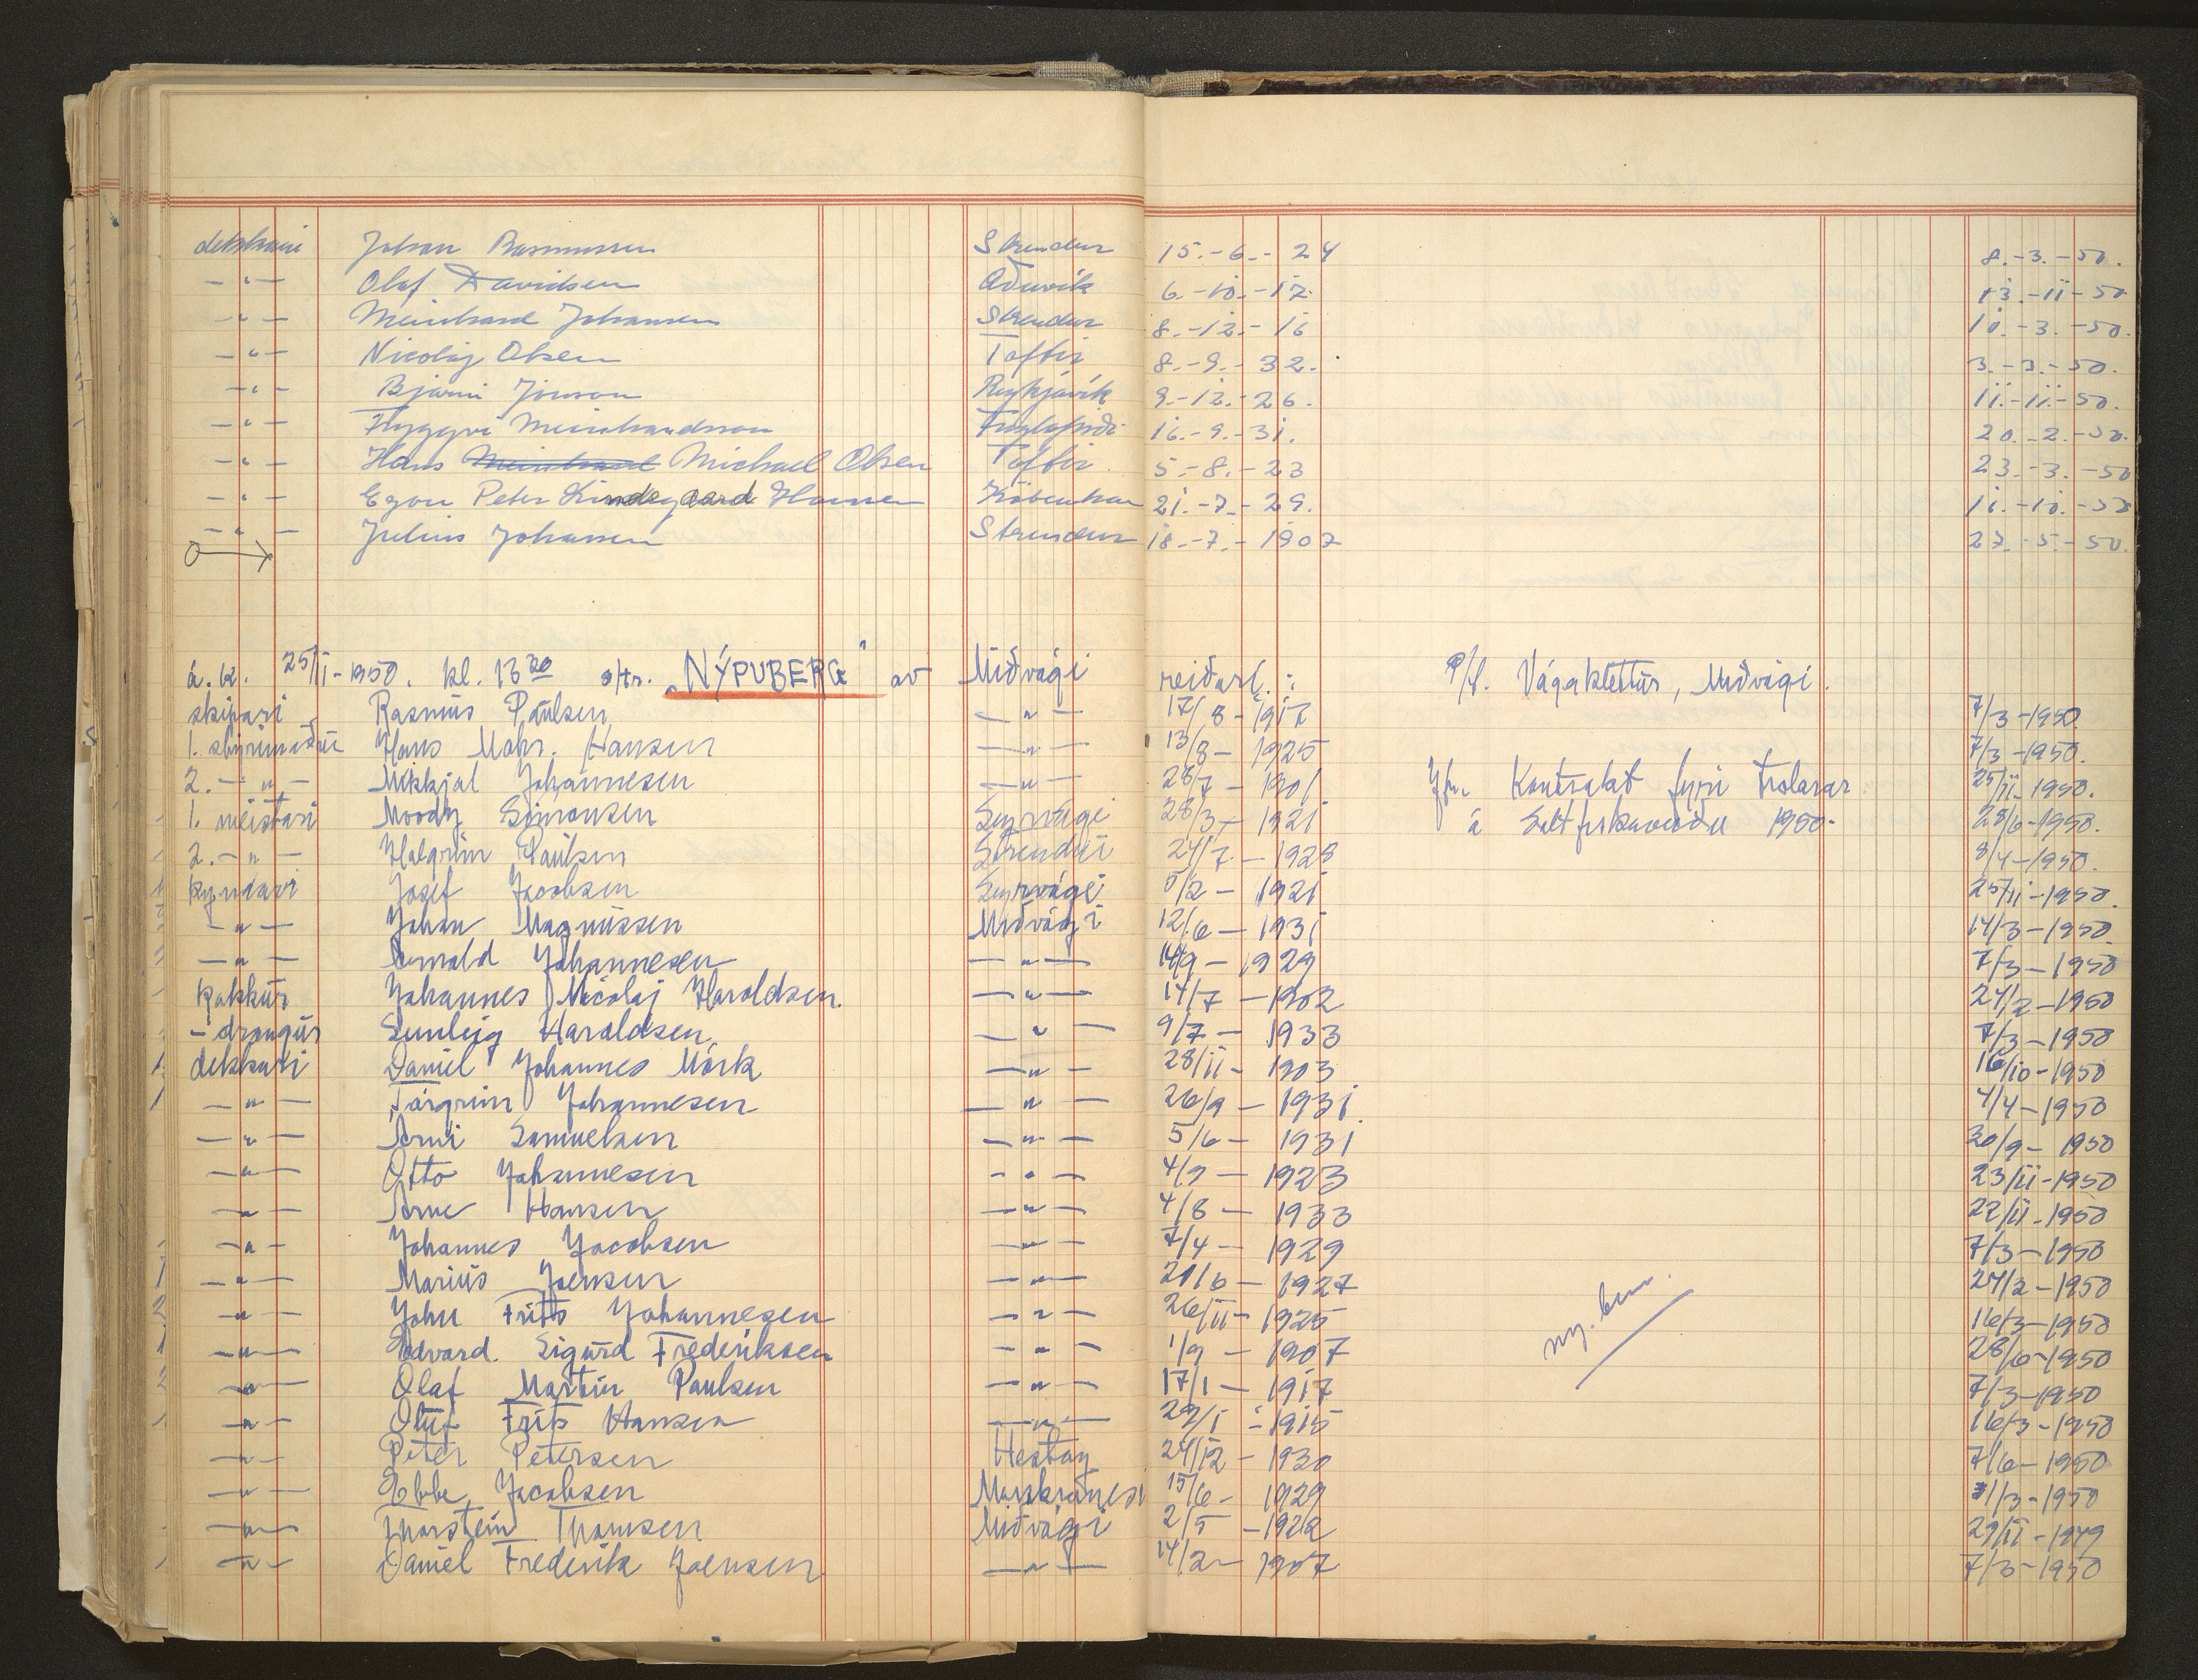 dekkari Johan Rasmussen Strendur 15.-6.- 24 8.-3.-50.
-"- Olaf Davidsen Æðuvík 6.-10.-12. 13.-11-50
-"- Meinhard Johansen Strendur 8.-12.- 16 10.-3.-50.
-"- Nicolaj Olsen Toftir 8.-9.- 32. 3.-3.-50.
-"- Bjarni Jónson Reykjavík 9.-12.-26. 11.-11-50.
-"- Tryggvi Meinhardsson Fuglafirði 16.-9.-31. 20.-2.-50.
-"- Hans Meinhard Michael Olsen Toftir 5.-8.-23 23.-3.-50
-"- Egon Peter Lindegaard Hansen København 21.-7.-29. 11.-10.-50
-"- Julius Johansen Strendur 18.-7.-1907 23.-5.-50.
á.k. 25/1-1950. kl. 13 30 s/tr. „NÝPUBERG" av Miðvági reiðarí.: P/f. Vágaklettur, Miðvági.
skipari Rasmus Paulsen -"- 17/8-1917 7/3-1950
1. stýrimaður Hans Mohr. Hansen -"- 13/8-1925 7/3-1950.
2. -"- Mikkjal Johannesen -"- 28/7-1901 Jfr. Kontrakt fyri trolarar 25/11-1950.
1. meistari Moody Simonsen Sørvági 28/3-1921 á Saltfiskaveiðu 1950- 28/6-1950.
2. -"- Halgrim Paulsen Strendur 24/7-1928 8/4-1950.
kyndari Josef Jacobsen Sørvági 5/2-1921 25/11-1950.
-"- Johan Magnussen Miðvági 12/6-1931 14/3-1950
-"- Arnold Johannesen -"- 14/9-1929 7/3-1950
kokkur Johannes Nicolaj Haraldsen. -"- 14/7-1902 24/2-1950
-drongur Sunleig Haraldsen. -"- 9/7-1933 7/3-1950
dekkari Daniel Johannes Mørk -"- 28/11-1903 16/10-1950
-"- Tórgrim Johannesen -"- 26/9-1931. 4/4-1950
-"- Arni Samuelsen -"- 5/6-1931 30/9-1950
-"- Otto Johannesen -"- 4/9-1923 23/11-1950
-"- Arne Hansen -"- 4/8-1933 22/11-1950
-"- Johannes Jacobsen -"- 7/4-1929 7/3-1950
-"- Marius Joensen -"- 21/6-1927 24/2-1950
-"- John Frits Johannesen -"- 26/11-1925 16/3-1950
-"- Edvard. Sigurd Frederiksen -"- 1/9-1907 28/6-1950
-"- Olaf Martin Paulsen -"- 17/1-1917 7/3-1950
-"- Oluf Frits Hansen -"- 29/1-1915 16/3-1950
-"- Peter Petersen Hestoy 24/12-1930 7/6-1950
-"- Ebbe Jacobsen Morskranesi 15/6-1929 1/3-1950
-"- Thorstein Thomsen Miðvági 2/5-1922 29/11-1949
-"- Daniel Frederik Joensen -"- 14/2-1907 7/3-1950